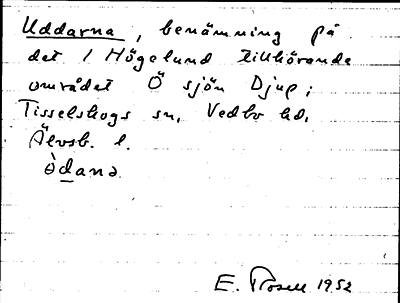 Uddarna, benämning på
det / Högelund tillhörande
området Ö sjön Djup;
Tisselskogs sn, Vedbo hd,
Älvsb. l.
òdana
E. Rosell 1952